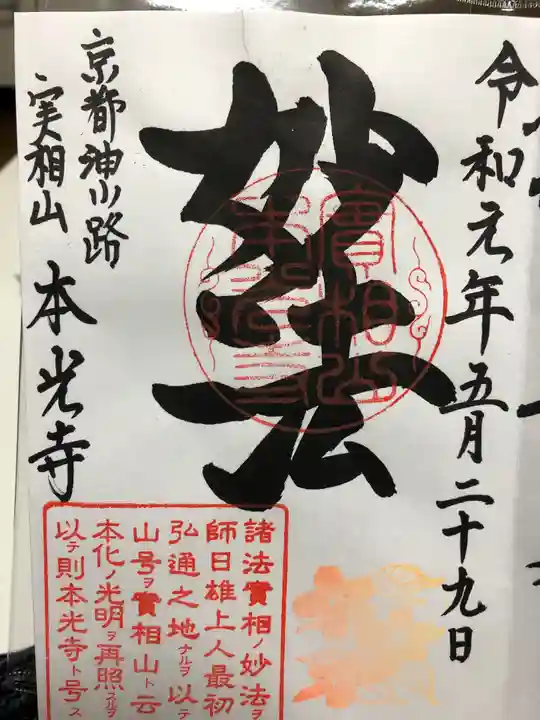 令和元年五月二十九日
妙法
實相山
本光寺
京都油小路
実相山 本光寺
諸法實相ノ妙法ヲ
師日雄上人最初
弘通之地ナルヲ以テ
山号ヲ實相山ト云
本化ノ光明ヲ再照スルヲ
以テ則本光寺ト号ス